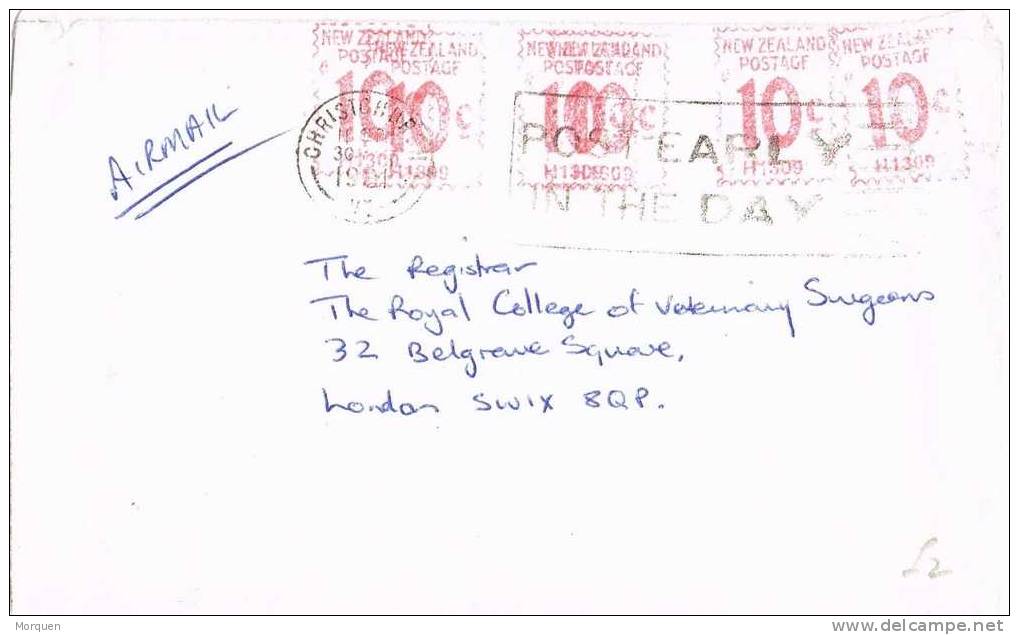 NEW ZEALAND NEW ZEALAND NEW ZEALAND NEW ZEALAND NEW ZEALAND NEW ZEALAND
POSTAGE POSTAGE POSTAGE POSTAGE POSTAGE POSTAGE
10c 10c 10c 10c 10c 10c
H1309 H1309 H1309 H1309 H1309
CHRISTCHURCH
30
POST EARLY
IN THE DAY
AIRMAIL
The Registrar
The Royal College of Veterinary Surgeons
32 Belgrave Square,
London SW1X 8QP.
£2
Morquen
www.delcampe.net